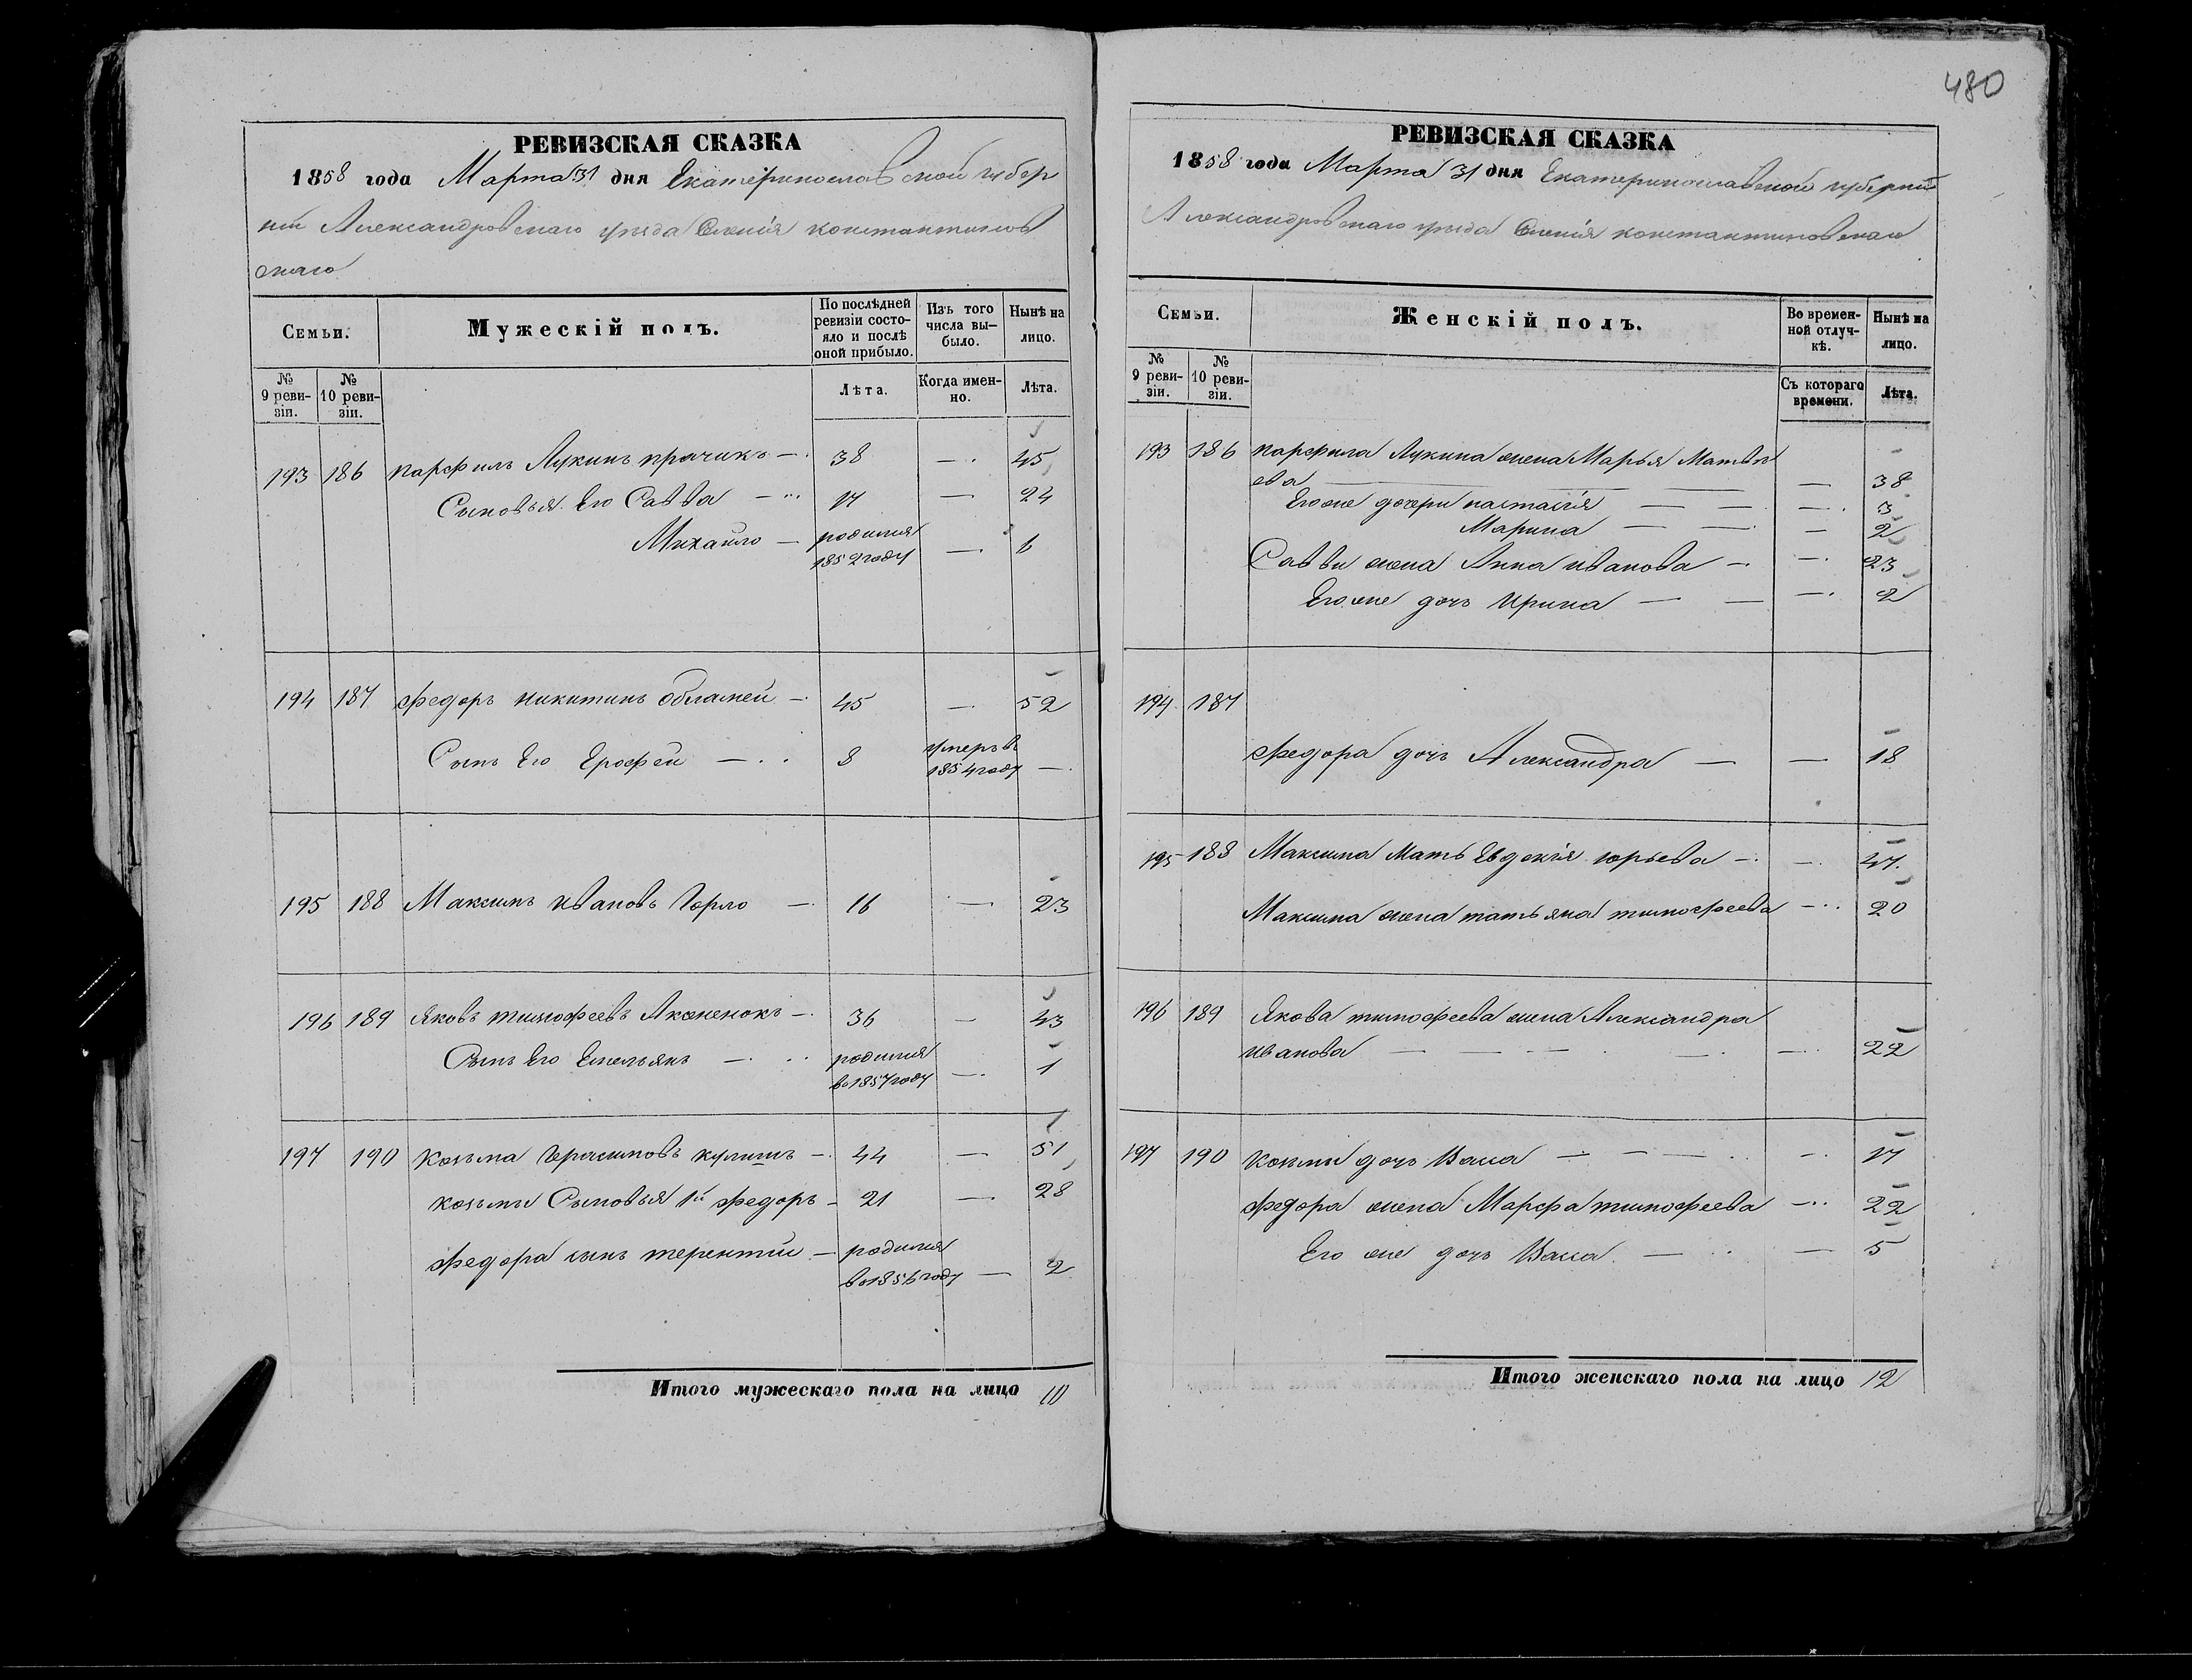 480
РЕВИЗСКАЯ СКАЗКА
1858 года Марта 31 дня Екатеринославской губер
нии Александровскаго уезда Селенія константинов
скаго
Семьи.
Мужескій полъ.
По послѣдней ревизіи состояло и послѣ оной прибыло.
Изъ того числа выбыло.
Нынѣ на лицо.
№ 9 ревизіи.
№ 10 ревизіи.
Лѣта.
Когда именно.
Лѣта.
193 186 парфилъ Лукинъ прачикъ — 38 — 45
Сыновья Его Савва — 17 — 24
Михайло — родился
1852 году — 6
194 187 федоръ никитинъ — 45 — 52
Сынъ Его Ерофей — 8 умеръ в
1854 году —
195 188 Максимъ ивановъ Горло — 16 — 23
196 189 Яковъ тимофеевъ — 36 — 43
Сынъ Его Емельянъ — родился
в 1857 году — 1
197 190 козьма Герасимовъ кулишъ — 44 — 51
козьмы Сыновья 1й федоръ — 21 — 28
федора сынъ терентий — родился
в 1856 году — 2
Итого мужескаго пола на лицо 10
РЕВИЗСКАЯ СКАЗКА
1858 года Марта 31 дня Екатеринославской губернии
Александровскаго уезда Селенія константиновскаго
Семьи.
Женскій полъ.
Во временной отлучкѣ.
Нынѣ на лицо.
№ 9 ревизіи.
№ 10 ревизіи.
Съ котораго времени.
Лѣта.
193 186 парфила Лукина жена Марья Матве
ева — — 38
Его же дочери настасія — — 3
Марина — — 2
Саввы жена Анна иванова — — 23
Его же дочь Ирина — — 2
194 187
федора дочь Александра — — 18
195 188 Максима Мать Евдокія юрьева — — 47
Максима жена татьяна тимофеева — 20
196 189 Якова тимофеева жена Александра
иванова — — 22
197 190 козьмы дочь Васса — — 17
федора жена Марфа тимофеева — 22
Его же дочь Васса — — 5
Итого женскаго пола на лицо 12